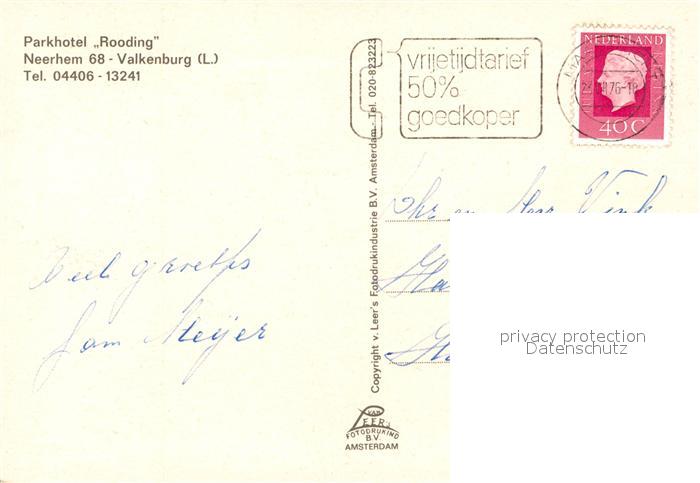 Parkhotel „Rooding"
Neerhem 68 - Valkenburg (L.)
Tel. 04406 - 13241
vrijetijdtarief
50%
goedkoper
NEDERLAND
76-18
40 C
Copyright v. Leer's Fotodrukindustrie B.V. Amsterdam - Tel. 020-823223
en Vink
Veel groetjes
Jan Meijer
privacy protection
Datenschutz
VAN
LEER's
FOTODRUKIND
B.V.
AMSTERDAM